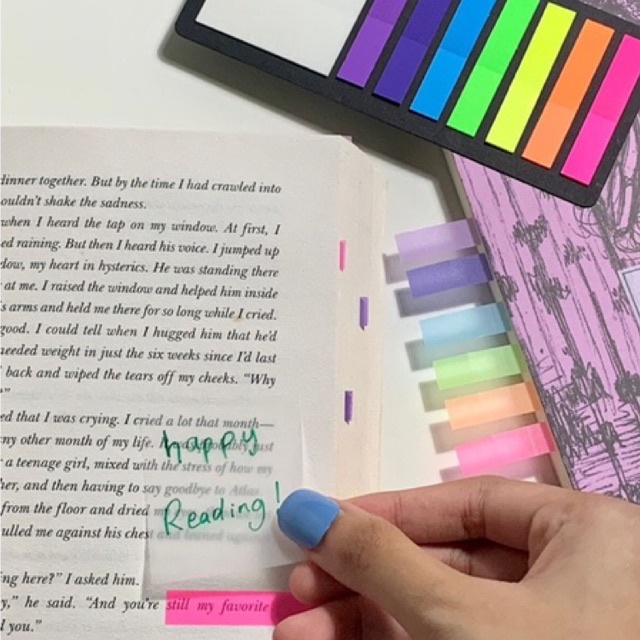 dinner together. But by the time I had crawled into
ouldn't shake the sadness.
when I heard the tap on my window. At first, I
ed raining. But then I heard his voice. I jumped up
dow, my heart in hysterics. He was standing there
at me. I raised the window and helped him inside
s arms and held me there for so long while I cried.
good. I could tell when I hugged him that he'd
needed weight in just the six weeks since I'd last
back and wiped the tears off my cheeks. "Why
"
ed that I was crying. I cried a lot that month—
ny other month of my life. It was probably just
a teenage girl, mixed with the stress of how my
her, and then having to say goodbye to Atlas.
from the floor and dried
ulled me against his chest
happy
Reading!
ing here?" I asked him.
y," he said. "And you're still my favorite
d you."